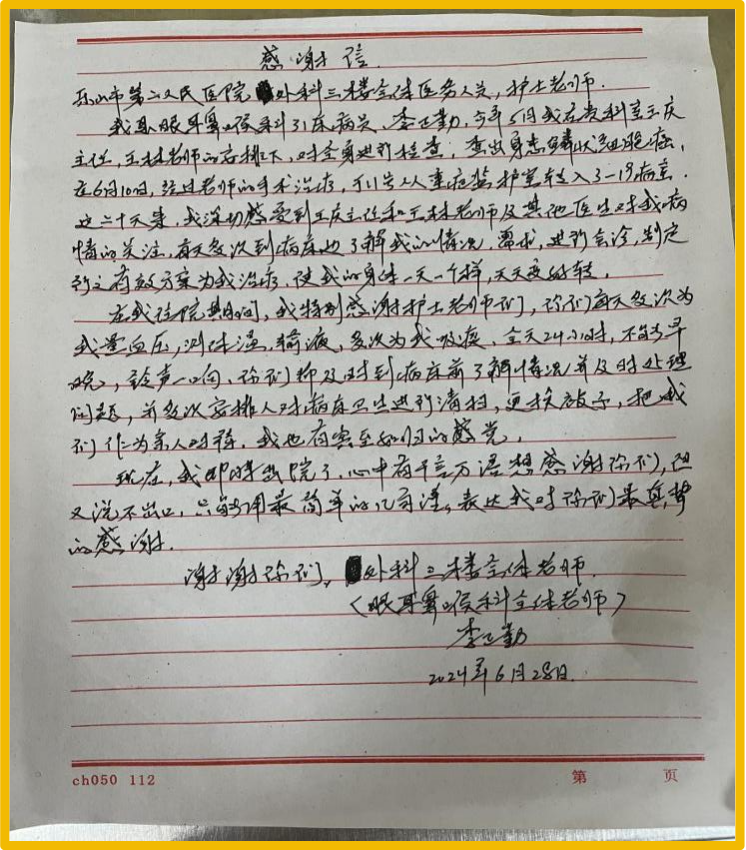 感谢信
乐山市第二人民医院外科三楼全体医务人员,护士老师.
我是眼耳鼻喉科31床病员,李正勤,今年5月我在贵科室王庆
主任,王林老师的安排下,对全身进行检查,查出身患鳞状细胞癌,
在6月10日,经过老师的手术治疗,于11号从重症监护室转入了-19病室.
这二十天来,我深切感受到王庆主任和王林老师及其他医生对我病
情的关注,每天多次到病床边了解我的情况,需求,进行会诊,制定
行之有效方案为我治疗,使我的身体一天一个样,天天在好转.
在我住院其间,我特别感谢护士老师们,你们每天多次为
我量血压,测体温,输液,多次为我吸痰,全天24小时,不分早
晚,铃声一响,你们都及时到病床前了解情况并及时处理
问题,并多次安排人对病床卫生进行清扫,更换被子,把我
们作为亲人对待,我也有宾至如归的感觉,
现在,我即将出院了,心中有千言万语想感谢你们,但
又说不出口,只能用最简单的几句话,表达我对你们最真挚
的感谢.
谢谢你们,外科三楼全体老师.
(眼耳鼻喉科全体老师)
李正勤
2024年6月28日.
ch050 112
第 页